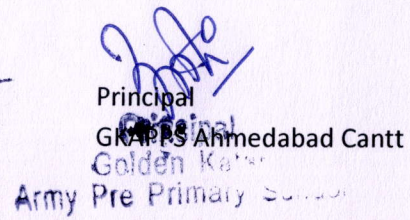 Principal
GKAPPS Ahmedabad Cantt
Principal
Golden Katar
Army Pre Primary School